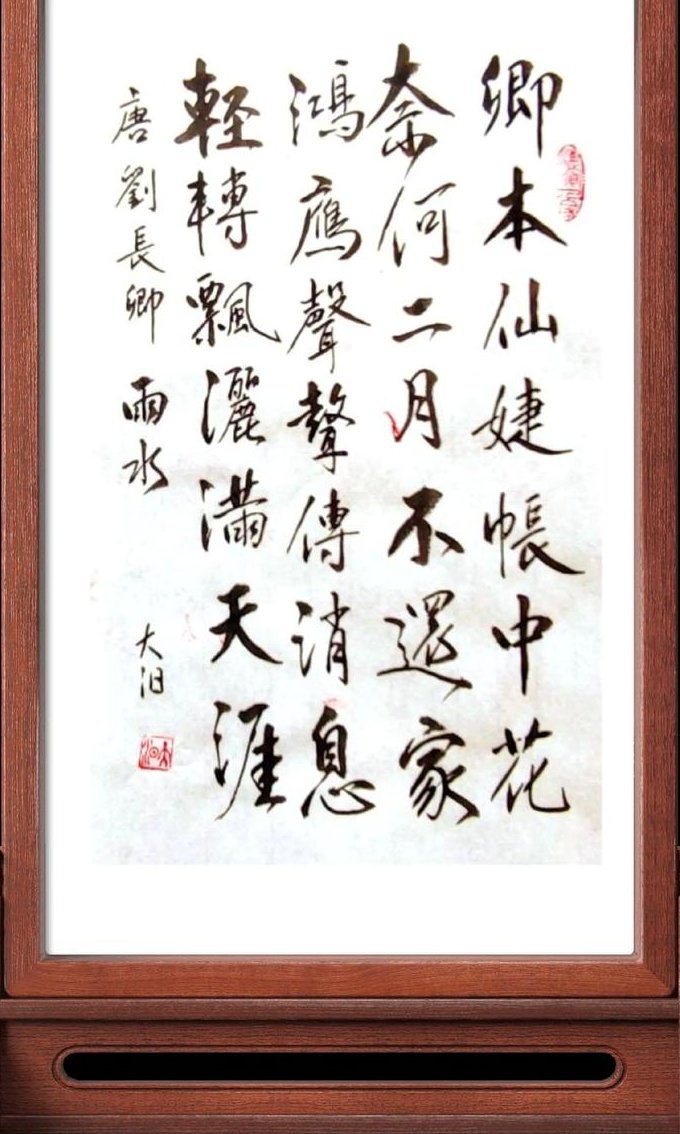 卿本仙婕帳中花
奈何二月不還家
鴻鷹聲聲傳消息
輕轉飄灑滿天涯
唐劉長卿 雨水
大汨